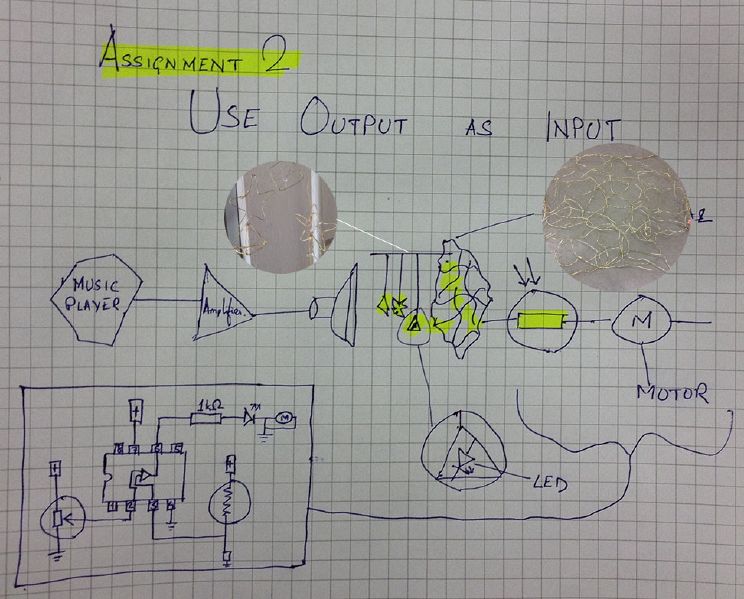 ASSIGNMENT 2
USE OUTPUT AS INPUT
MUSIC
PLAYER
Amplifier
M
MOTOR
1kΩ
M
LED
+
+
+